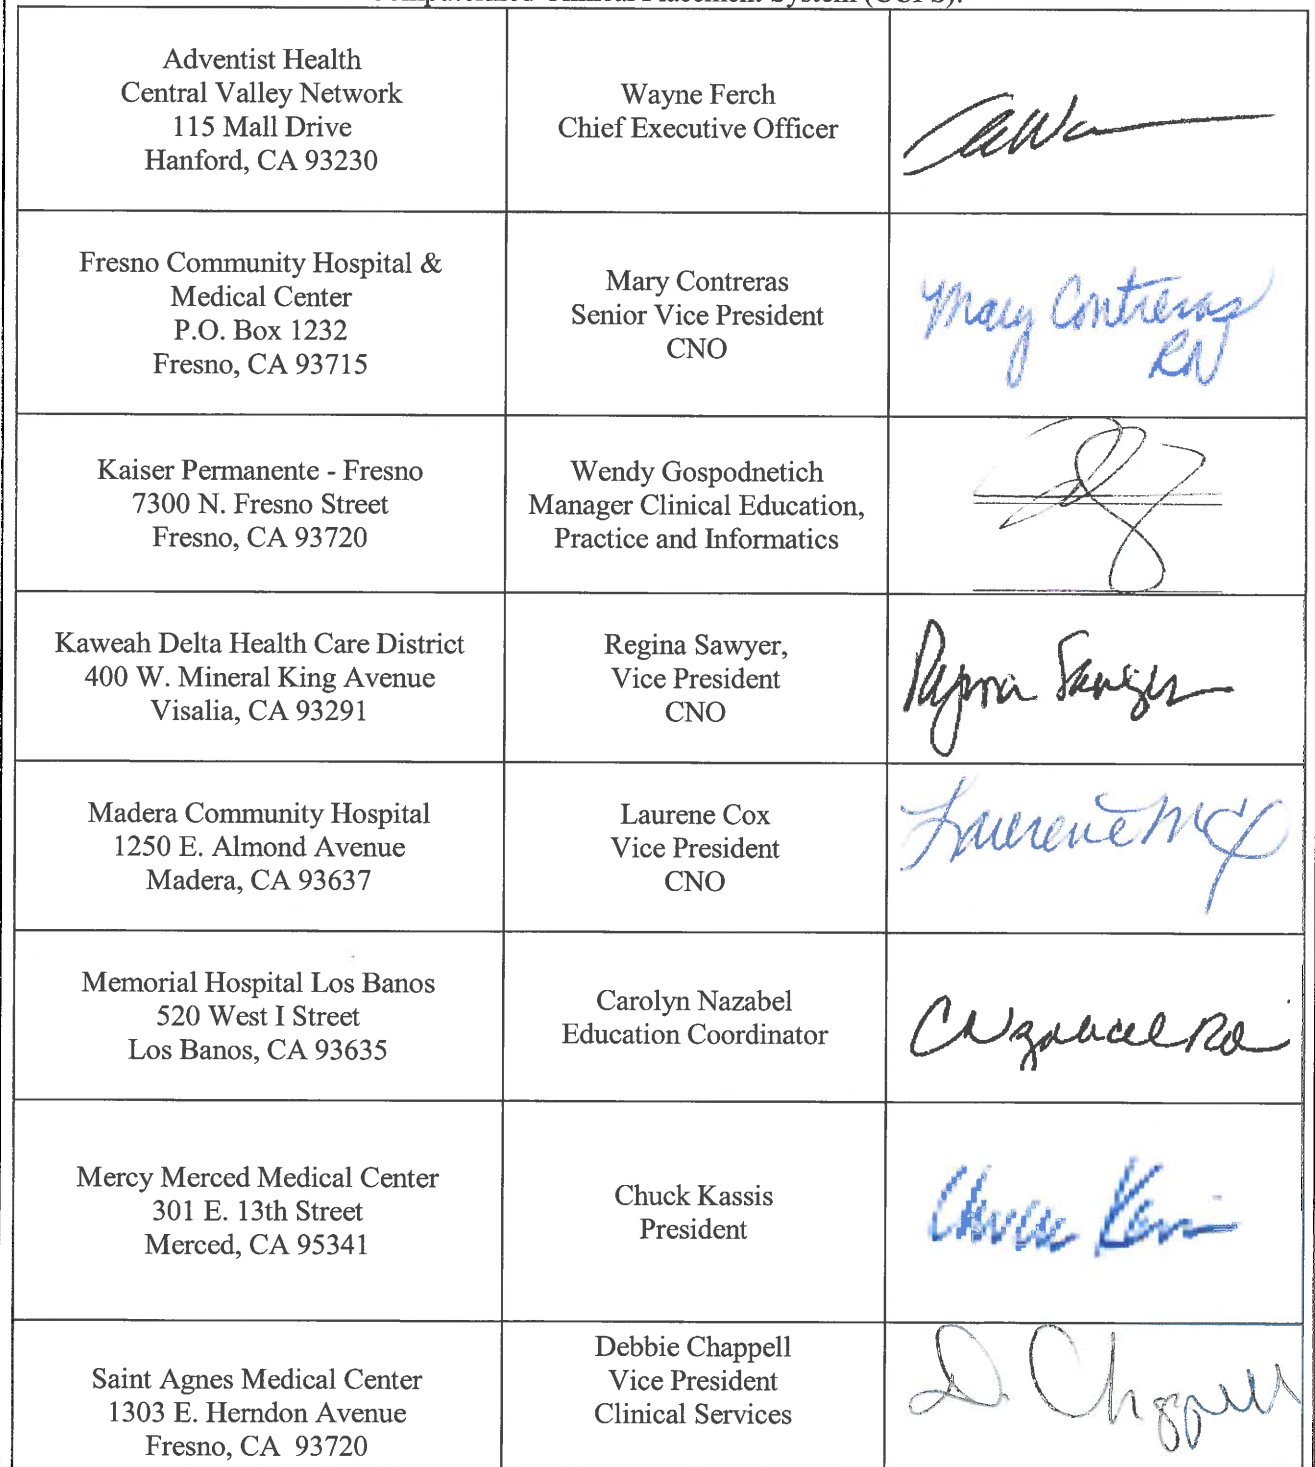 Computerized Clinical Placement System (CCPS).
Adventist Health
Central Valley Network
115 Mall Drive
Hanford, CA 93230
Wayne Ferch
Chief Executive Officer
Fresno Community Hospital &
Medical Center
P.O. Box 1232
Fresno, CA 93715
Mary Contreras
Senior Vice President
CNO
Mary Contreras
RN
Kaiser Permanente - Fresno
7300 N. Fresno Street
Fresno, CA 93720
Wendy Gospodnetich
Manager Clinical Education,
Practice and Informatics
Kaweah Delta Health Care District
400 W. Mineral King Avenue
Visalia, CA 93291
Regina Sawyer,
Vice President
CNO
Regina Sawyer
Madera Community Hospital
1250 E. Almond Avenue
Madera, CA 93637
Laurene Cox
Vice President
CNO
Memorial Hospital Los Banos
520 West I Street
Los Banos, CA 93635
Carolyn Nazabel
Education Coordinator
Mercy Merced Medical Center
301 E. 13th Street
Merced, CA 95341
Chuck Kassis
President
Saint Agnes Medical Center
1303 E. Herndon Avenue
Fresno, CA 93720
Debbie Chappell
Vice President
Clinical Services
D. Chappell